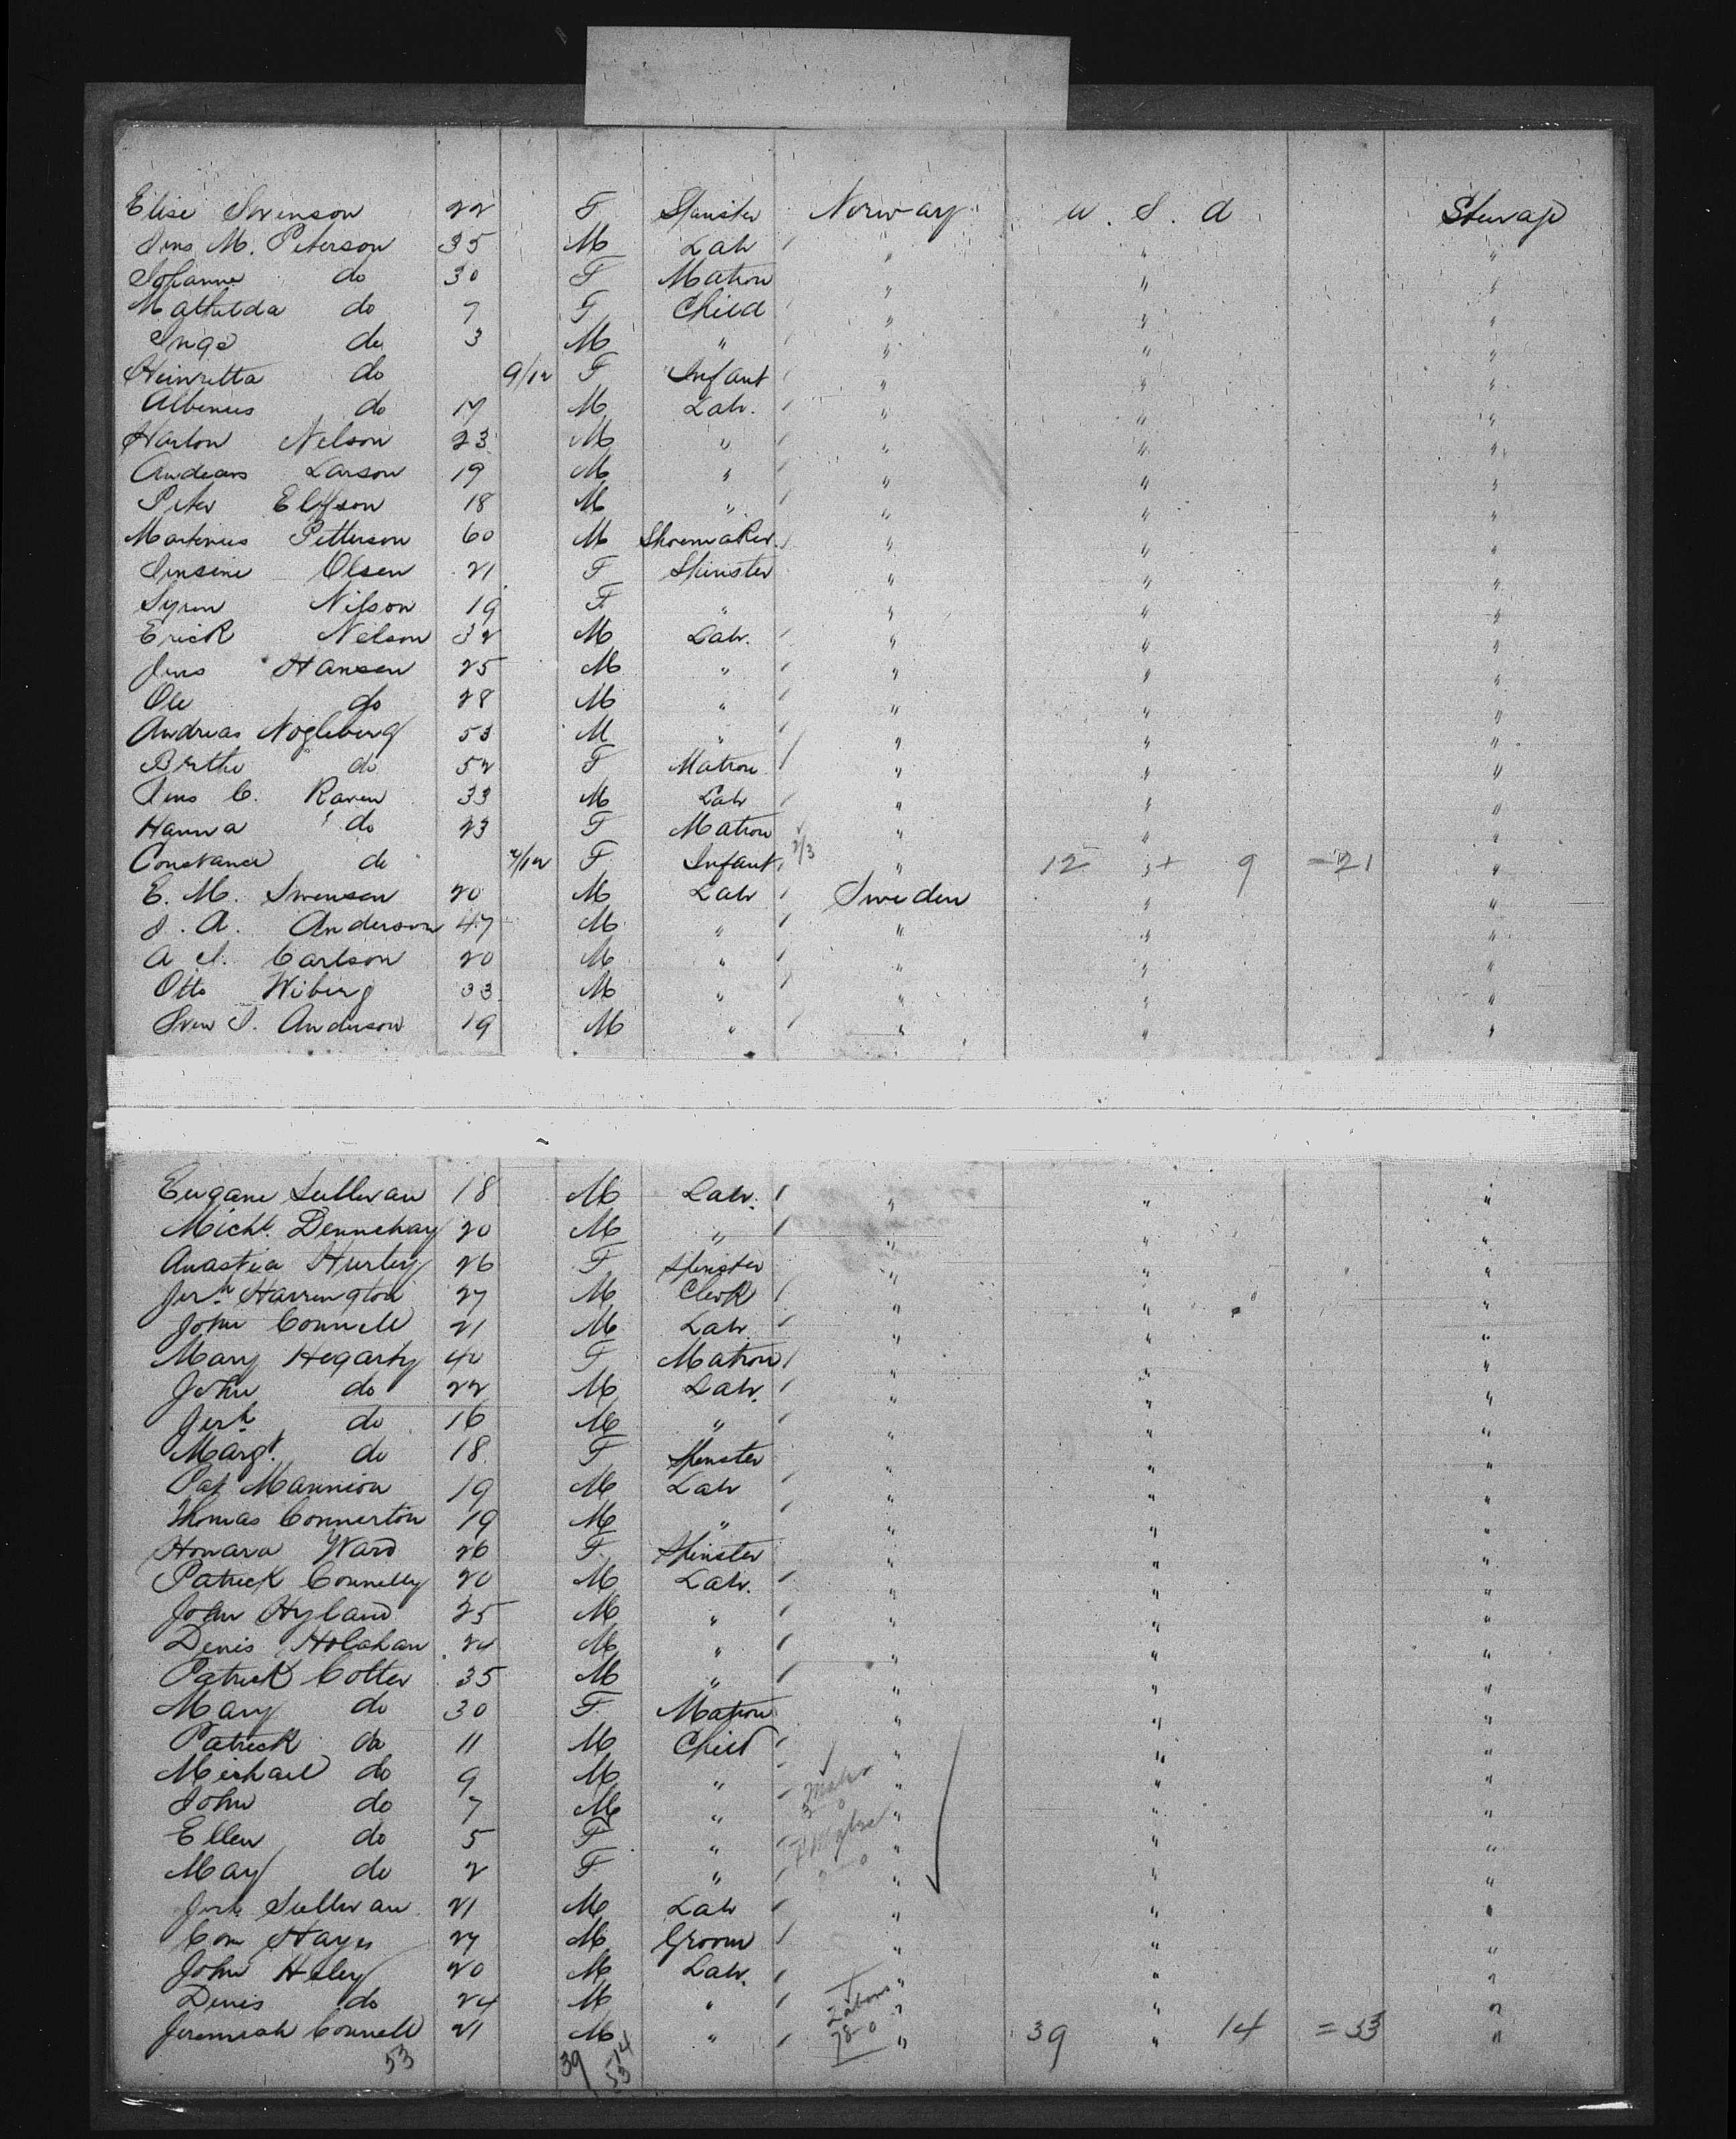 Elise Swenson 22 F Spinster Norway U. S. A Steerage
Jens M. Peterson 35 M Labr " " "
Johanne do 30 F Matron " " "
Mathilda do 7 F Child " " "
Inga do 3 M " " " "
Heinretta do 9/12 F Infant " " "
Albinus do 17 M Labr. " " "
Harlon Nelson 23 M " " " "
Andears Larson 19 M " " " "
Peter Elefson 18 M " " " "
Martinus Petterson 60 M Shoemaker " " "
Jensine Olsen 21 F Spinster " " "
Syren Nilson 19 F " " " "
Erick Nelson 32 M Labr. " " "
Jens Hansen 25 M " " " "
Ole do 28 M " " " "
Andreas Nogleberg 53 M " " " "
Berthe do 52 F Matron " " "
Jens C. Raven 33 M Labr " " "
Hanna do 23 F Matron " " "
Constance do /12 F Infant " 12 + 9 = 21 "
E. M. Swensen 20 M Labr Sweden " "
J. A. Anderson 47 M " " " "
A J. Carlson 20 M " " " "
Otto Wiberg 33 M " " " "
Sven J. Anderson 19 M " " " "
Eugane Sullivan 18 M Labr. " " "
Michl. Dennehay 20 M " " " "
Anastia Hurley 26 F Spinster " " "
Jerh Harrington 27 M Clerk " " "
John Connell 21 M Labr " " "
Mary Hegarty 40 F Matron " " "
John do 22 M Labr. " " "
Jerh. do 16 M " " " "
Margt. do 18 F Spinster " " "
Pat Mannion 19 M Labr " " "
Thomas Connerton 19 M " " " "
Honara Ward 26 F Spinster " " "
Patrick Connelly 20 M Labr. " " "
John Hyland 25 M " " " "
Denis Holahan 24 M " " " "
Patrick Cotter 35 M " " " "
Mary do 30 F Matron " " "
Patrick do 11 M Child " " "
Michael do 9 M " " " "
John do 7 M " " " "
Ellen do 5 F " " " "
May do 2 F " " " "
Jerh Sullivan 21 M Labr " " "
Con Hayes 27 M Groom " " "
John Heley 20 M Labr. " " "
Denis do 24 M " " " "
Jeremiah Connell 21 M " " 39 " 14 = 53 "
53 39 14
53